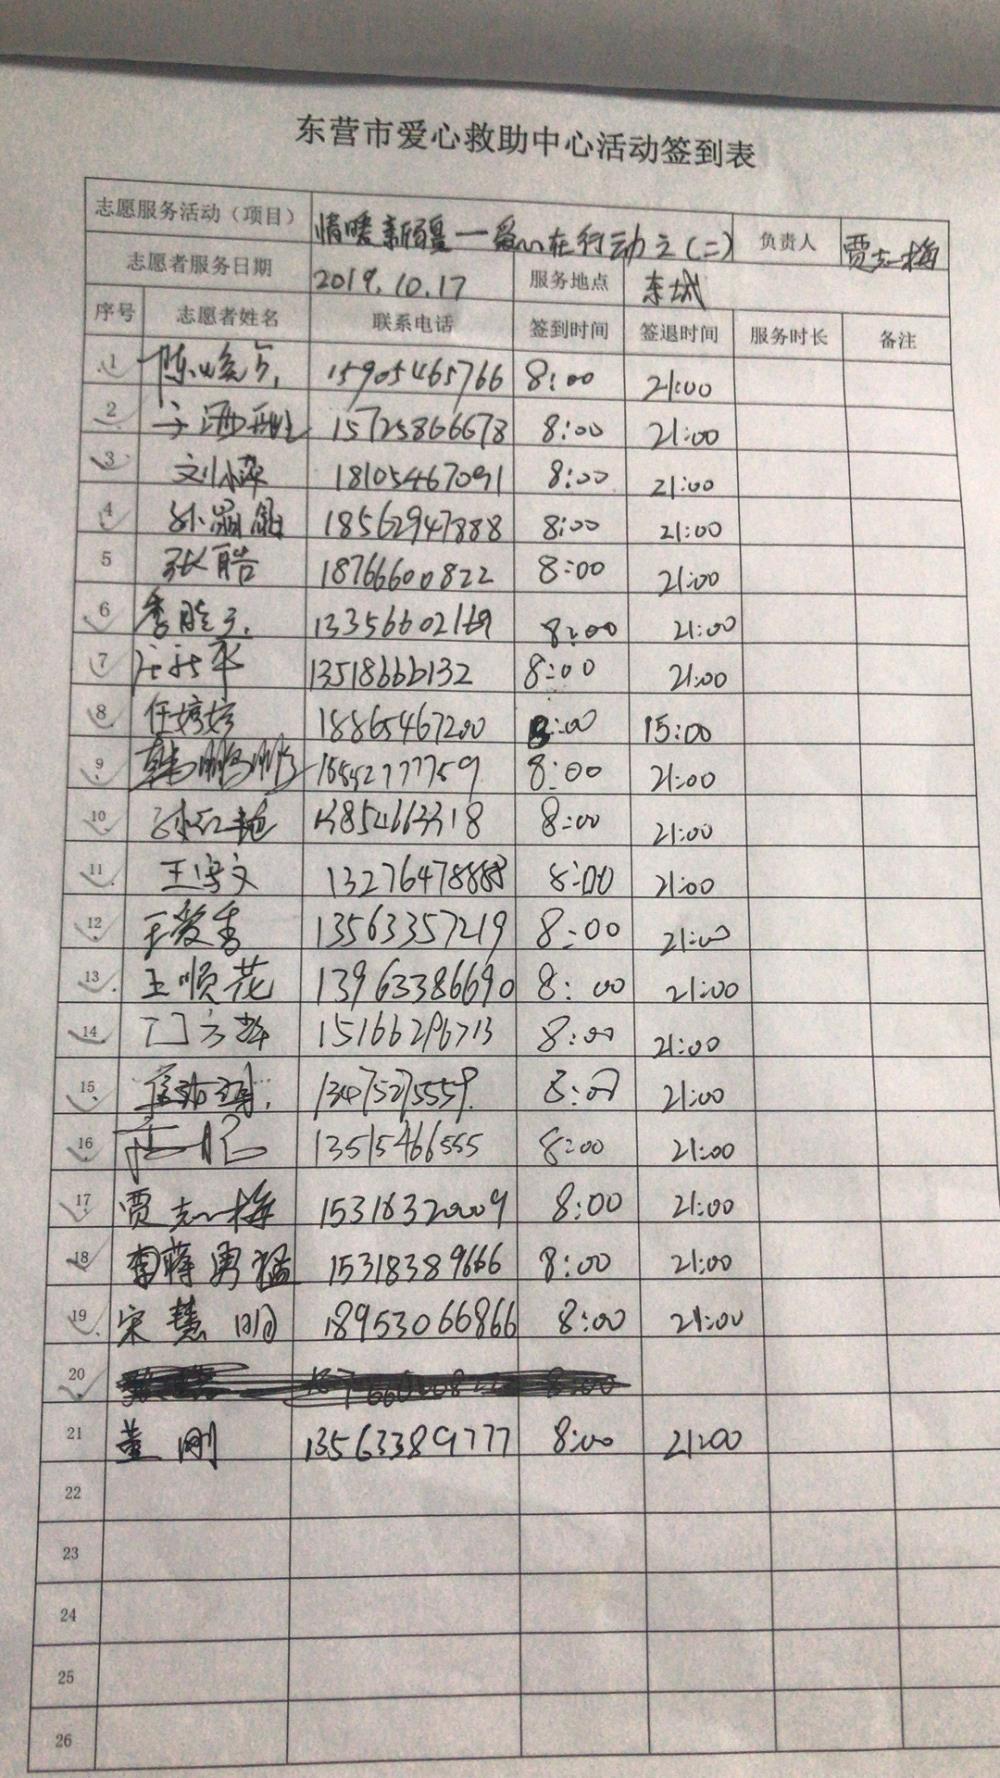 东营市爱心救助中心活动签到表
志愿服务活动（项目） 情暖新疆一爱心在行动之(二) 负责人 贾志梅
志愿者服务日期 2019.10.17 服务地点 东城
序号 志愿者姓名 联系电话 签到时间 签退时间 服务时长 备注
1 15905465766 8:00 21:00
2 15725866678 8:00 21:00
3 刘小萍 18105467091 8:00 21:00
4 18562947888 8:00 21:00
5 张皓 18766600822 8:00 21:00
6 李胜 13356602169 8:00 21:00
7 13518666132 8:00 21:00
8 任婷婷 18865467200 8:00 15:00
9 韩鹏鹏 15552777759 8:00 21:00
10 孙红艳 13854663318 8:00 21:00
11 王学文 13276478888 8:00 21:00
12 王爱香 13563357219 8:00 21:00
13 王顺花 13963386690 8:00 21:00
14 门方 15166296713 8:00 21:00
15 13475275559 8:00 21:00
16 13515466555 8:00 21:00
17 贾志梅 15318320009 8:00 21:00
18 李蒋勇猛 15318389666 8:00 21:00
19 宋慧明 18953066866 8:00 21:00
20
21 董刚 13563389777 8:00 21:00
22
23
24
25
26